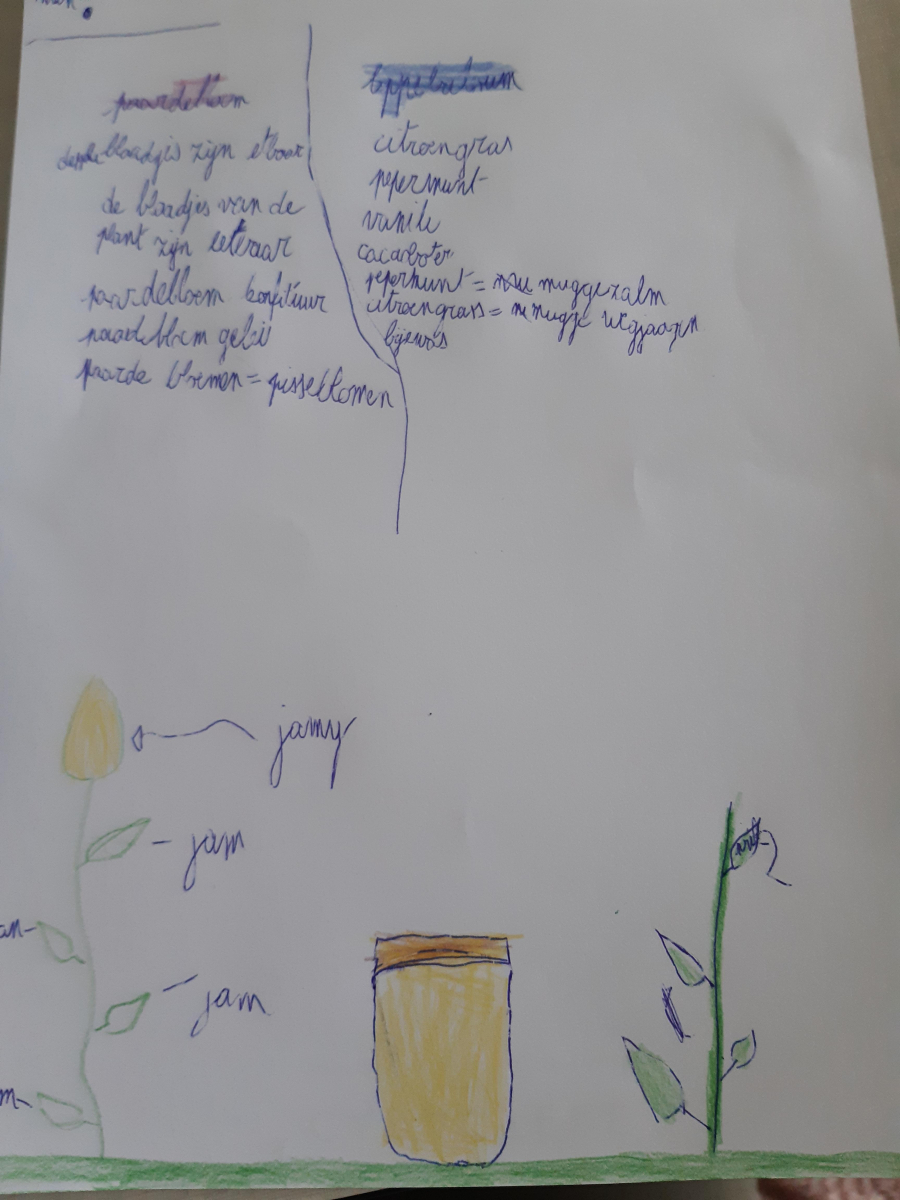 paardebloem
blaadjes zijn etbaar
de blaadjes van de
plant zijn eetbaar
paardebloem konfituur
paardebloem gelei
paarde bloemen = pissebloemen
citroengras
pepermunt
vanile
cacaoboter
pepermunt = muggezalm
citroengras = mugje wegjaagen
bijewas
jamy
jam
jam